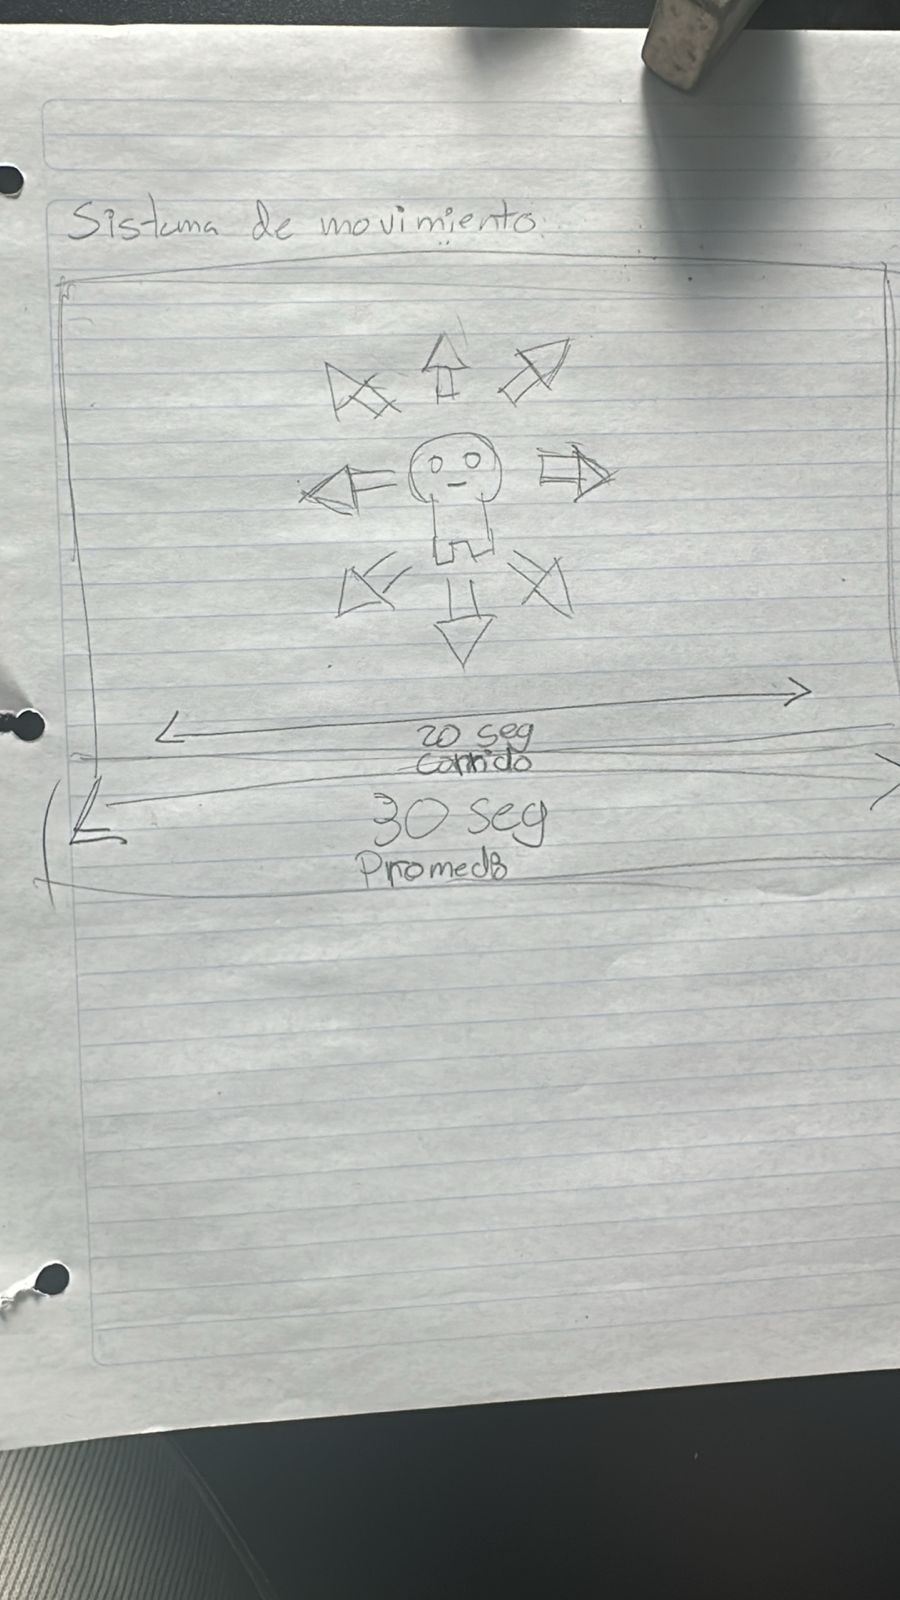 Sistema de movimiento
20 seg
corrido
30 seg
Promedo